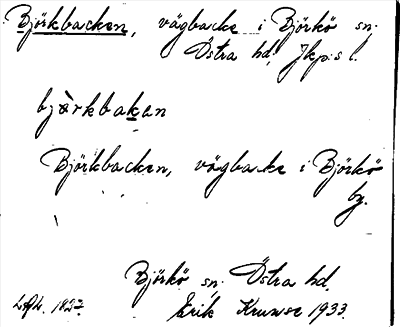 Björkbacken, vägbacke i Björkö sn.
Östra hd. Jkp:s l.
bjärkbakan
Björkbacken, vägbacke i Björkö
by.
Björkö sn. Östra hd.
1827. Erik Kruuse 1933.